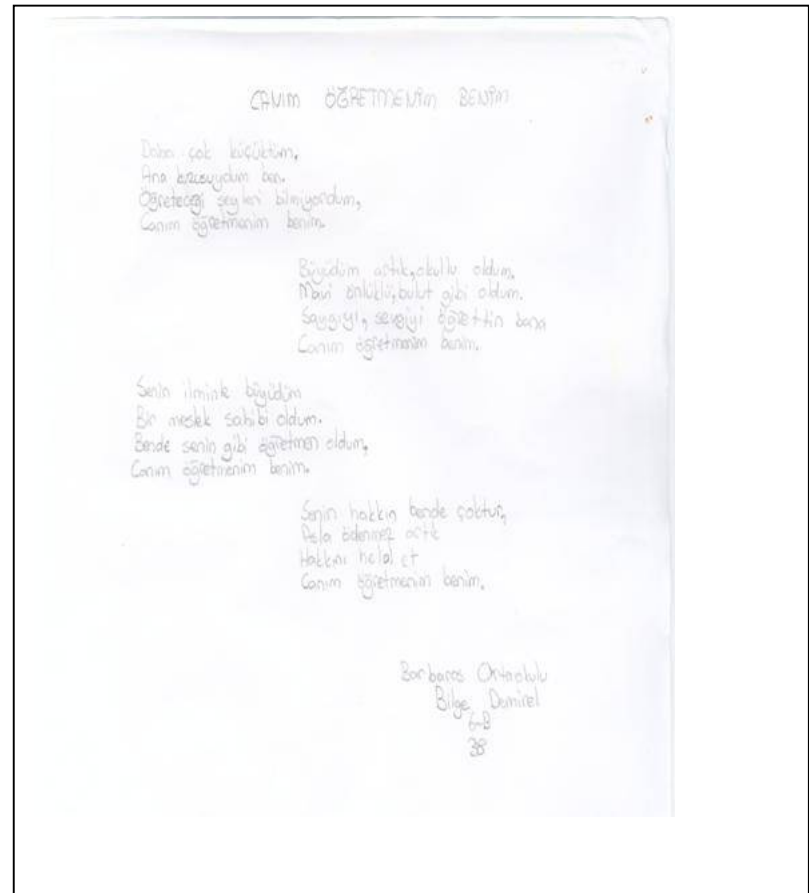 CANIM ÖĞRETMENİM BENİM
Daha çok küçüktüm,
Ana kuzusuydum ben.
Öğreteceği şeyleri bilmiyordum,
Canım öğretmenim benim.
Büyüdüm artık, okullu oldum,
Mavi önlüklü, bulut gibi oldum.
Saygıyı, sevgiyi öğrettin bana
Canım öğretmenim benim.
Senin ilminle büyüdüm
Bir meslek sahibi oldum.
Bende senin gibi öğretmen oldum,
Canım öğretmenim benim.
Senin hakkın bende çoktur,
Asla ödenmez artık
Hakkını helal et
Canım öğretmenim benim.
Barbaros Ortaokulu
Bilge Demirel
6-B
38